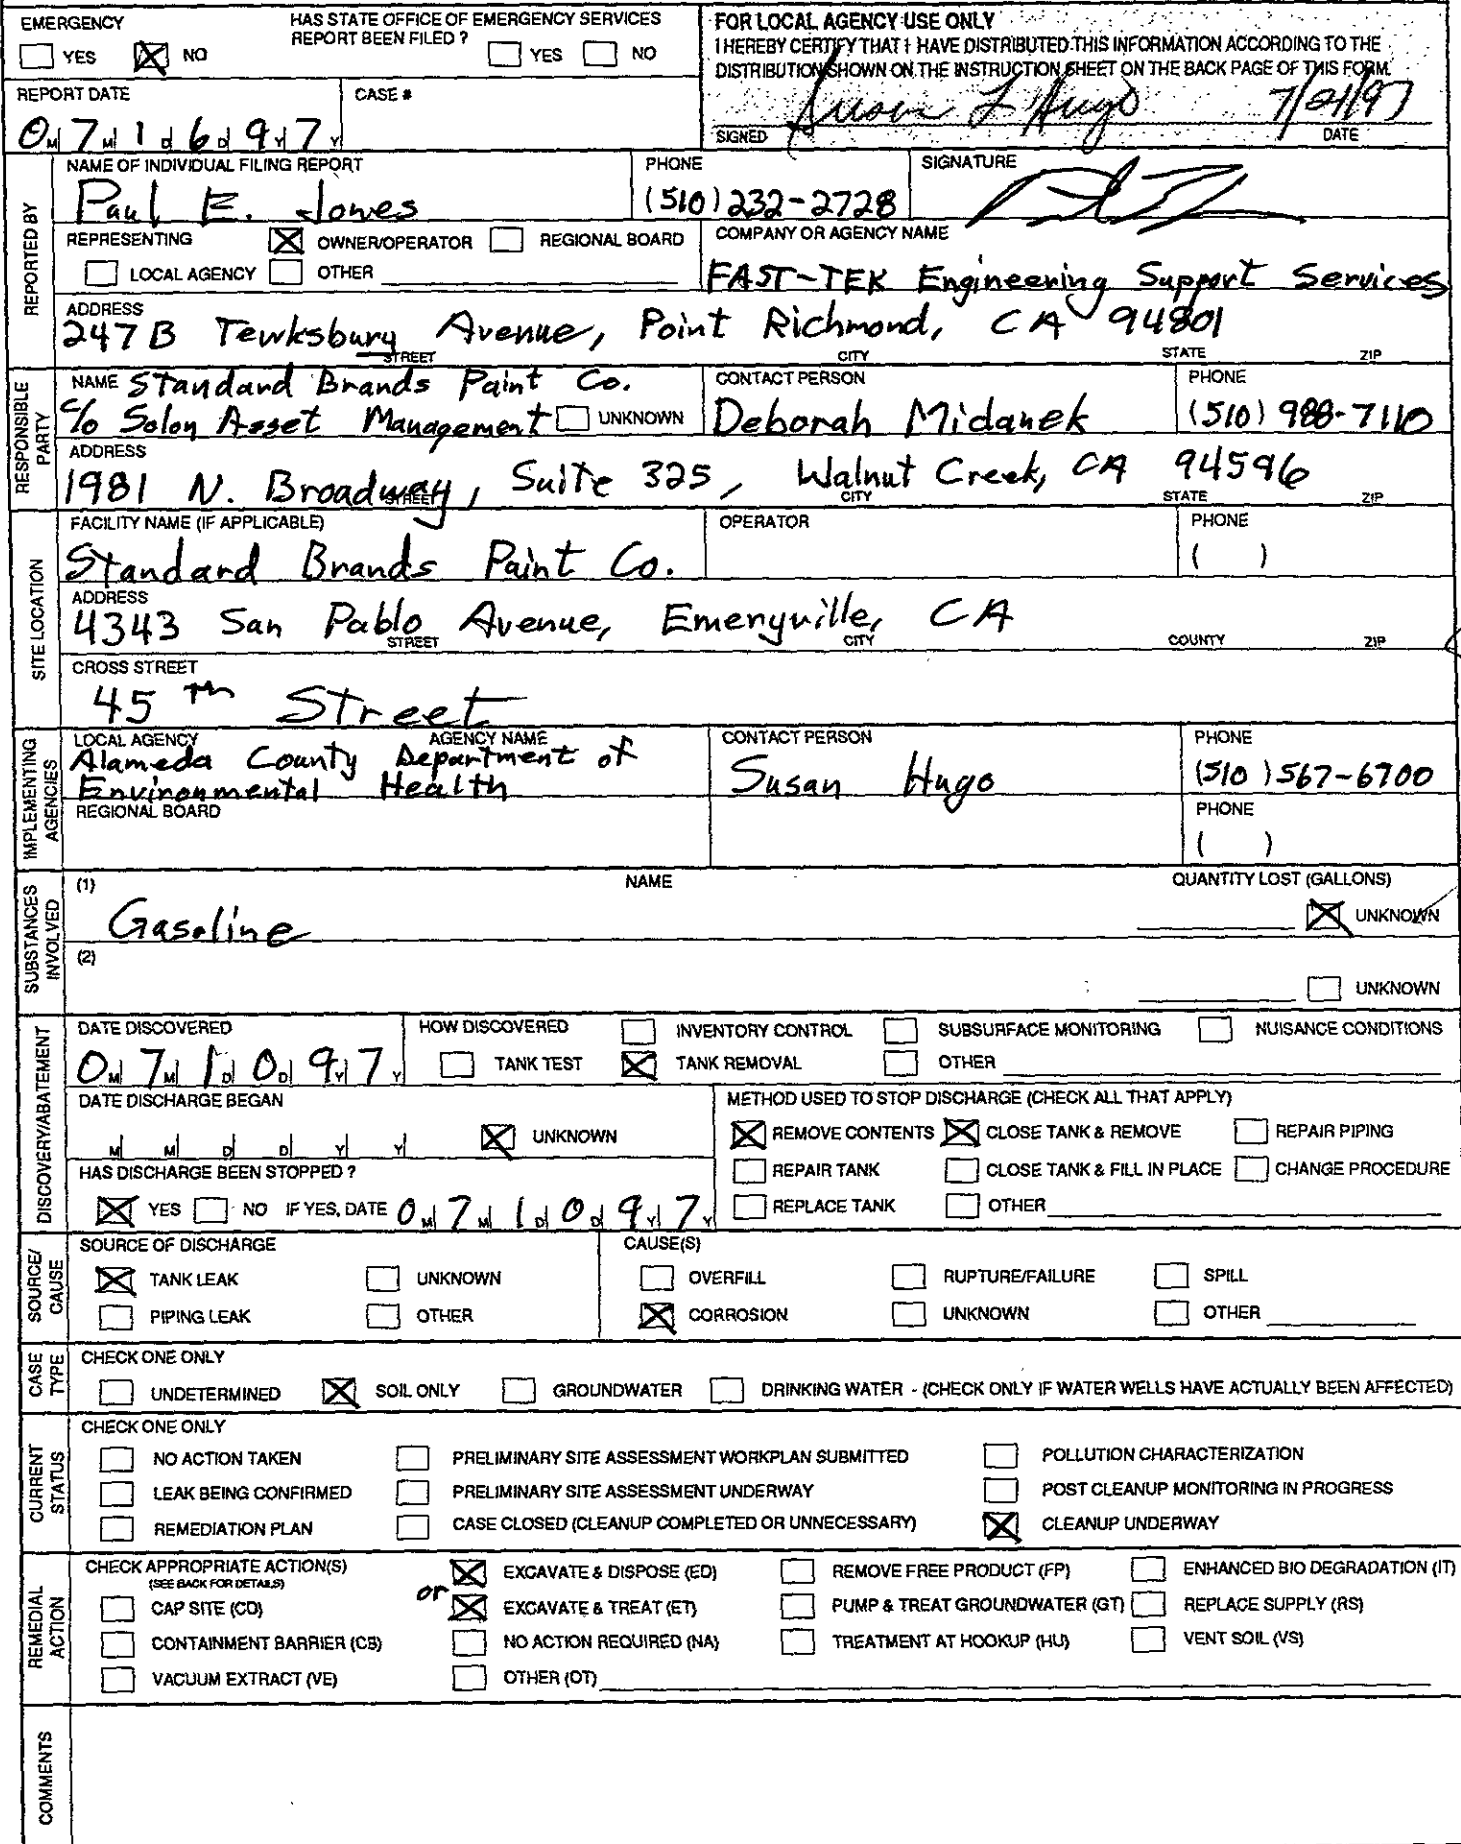 EMERGENCY
YES NO
HAS STATE OFFICE OF EMERGENCY SERVICES
REPORT BEEN FILED ?
YES NO
FOR LOCAL AGENCY USE ONLY
I HEREBY CERTIFY THAT I HAVE DISTRIBUTED THIS INFORMATION ACCORDING TO THE
DISTRIBUTION SHOWN ON THE INSTRUCTION SHEET ON THE BACK PAGE OF THIS FORM.
REPORT DATE
0M 7M 1D 6D 9Y 7Y
CASE #
SIGNED Susan L Hugo 7/21/97 DATE
REPORTED BY
NAME OF INDIVIDUAL FILING REPORT
Paul E. Jones
PHONE
(510) 232-2728
SIGNATURE
REPRESENTING OWNER/OPERATOR REGIONAL BOARD
LOCAL AGENCY OTHER
COMPANY OR AGENCY NAME
FAST-TEK Engineering Support Services
ADDRESS
247 B Tewksbury Avenue, Point Richmond, CA 94801
STREET CITY STATE ZIP
RESPONSIBLE PARTY
NAME Standard Brands Paint Co.
c/o Solon Asset Management UNKNOWN
CONTACT PERSON
Deborah Midanek
PHONE
(510) 988-7110
ADDRESS
1981 N. Broadway, Suite 325, Walnut Creek, CA 94596
STREET CITY STATE ZIP
SITE LOCATION
FACILITY NAME (IF APPLICABLE)
Standard Brands Paint Co.
OPERATOR
PHONE
( )
ADDRESS
4343 San Pablo Avenue, Emeryville, CA
STREET CITY COUNTY ZIP
CROSS STREET
45th Street
IMPLEMENTING AGENCIES
LOCAL AGENCY AGENCY NAME
Alameda County Department of
Environmental Health
CONTACT PERSON
Susan Hugo
PHONE
(510) 567-6700
REGIONAL BOARD
PHONE
( )
SUBSTANCES INVOLVED
(1) NAME QUANTITY LOST (GALLONS)
Gasoline UNKNOWN
(2)
UNKNOWN
DISCOVERY/ABATEMENT
DATE DISCOVERED
0M 7M 1D 0D 9Y 7Y
HOW DISCOVERED INVENTORY CONTROL SUBSURFACE MONITORING NUISANCE CONDITIONS
TANK TEST TANK REMOVAL OTHER
DATE DISCHARGE BEGAN
M M D D Y Y UNKNOWN
METHOD USED TO STOP DISCHARGE (CHECK ALL THAT APPLY)
REMOVE CONTENTS CLOSE TANK & REMOVE REPAIR PIPING
REPAIR TANK CLOSE TANK & FILL IN PLACE CHANGE PROCEDURE
REPLACE TANK OTHER
HAS DISCHARGE BEEN STOPPED ?
YES NO IF YES, DATE 0M 7M 1D 0D 9Y 7Y
SOURCE/ CAUSE
SOURCE OF DISCHARGE
TANK LEAK UNKNOWN
PIPING LEAK OTHER
CAUSE(S)
OVERFILL RUPTURE/FAILURE SPILL
CORROSION UNKNOWN OTHER
CASE TYPE
CHECK ONE ONLY
UNDETERMINED SOIL ONLY GROUNDWATER DRINKING WATER - (CHECK ONLY IF WATER WELLS HAVE ACTUALLY BEEN AFFECTED)
CURRENT STATUS
CHECK ONE ONLY
NO ACTION TAKEN PRELIMINARY SITE ASSESSMENT WORKPLAN SUBMITTED POLLUTION CHARACTERIZATION
LEAK BEING CONFIRMED PRELIMINARY SITE ASSESSMENT UNDERWAY POST CLEANUP MONITORING IN PROGRESS
REMEDIATION PLAN CASE CLOSED (CLEANUP COMPLETED OR UNNECESSARY) CLEANUP UNDERWAY
REMEDIAL ACTION
CHECK APPROPRIATE ACTION(S)
(SEE BACK FOR DETAILS)
EXCAVATE & DISPOSE (ED) REMOVE FREE PRODUCT (FP) ENHANCED BIO DEGRADATION (IT)
CAP SITE (CD) or EXCAVATE & TREAT (ET) PUMP & TREAT GROUNDWATER (GT) REPLACE SUPPLY (RS)
CONTAINMENT BARRIER (CB) NO ACTION REQUIRED (NA) TREATMENT AT HOOKUP (HU) VENT SOIL (VS)
VACUUM EXTRACT (VE) OTHER (OT)
COMMENTS